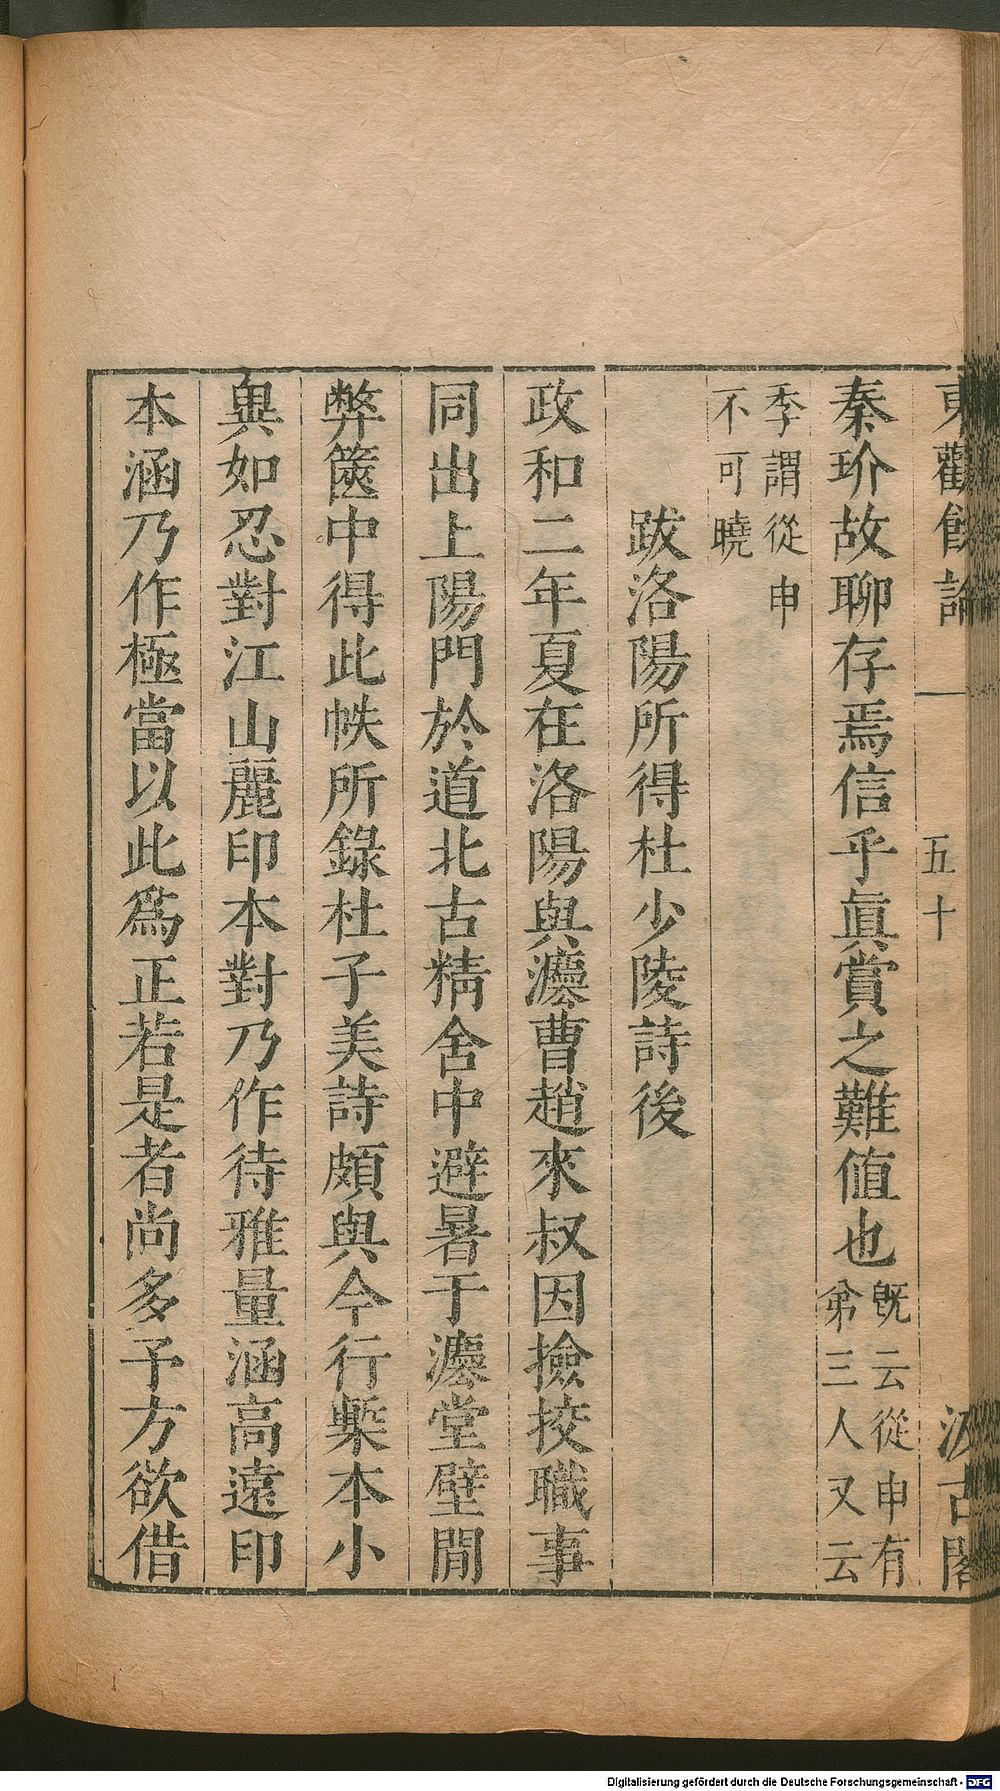 東觀餘論
五十
汲古閣
秦玠故聊存焉信乎眞賞之難值也旣云從申有
弟三人又云
季謂從申
不可曉
跋洛陽所得杜少陵詩後
政和二年夏在洛陽與灋曹趙來叔因撿挍職事
同出上陽門於道北古精舍中避暑于灋堂壁閒
弊篋中得此帙所錄杜子美詩頗與今行槧本小
異如忍對江山麗印本對乃作待雅量涵高遠印
本涵乃作極當以此爲正若是者尚多予方欲借
Digitalisierung gefördert durch die Deutsche Forschungsgemeinschaft - DFG